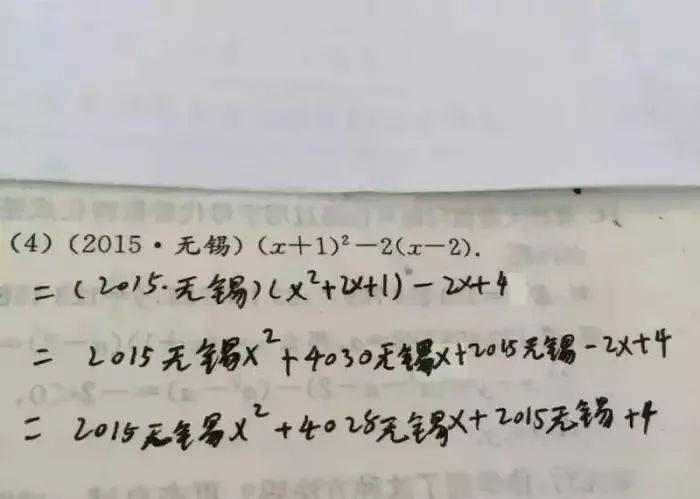 (4) (2015·无锡) (x+1)²-2(x-2).
= (2015·无锡)(x²+2x+1)-2x+4
= 2015无锡x²+4030无锡x+2015无锡-2x+4
= 2015无锡x²+4028无锡x+2015无锡+4